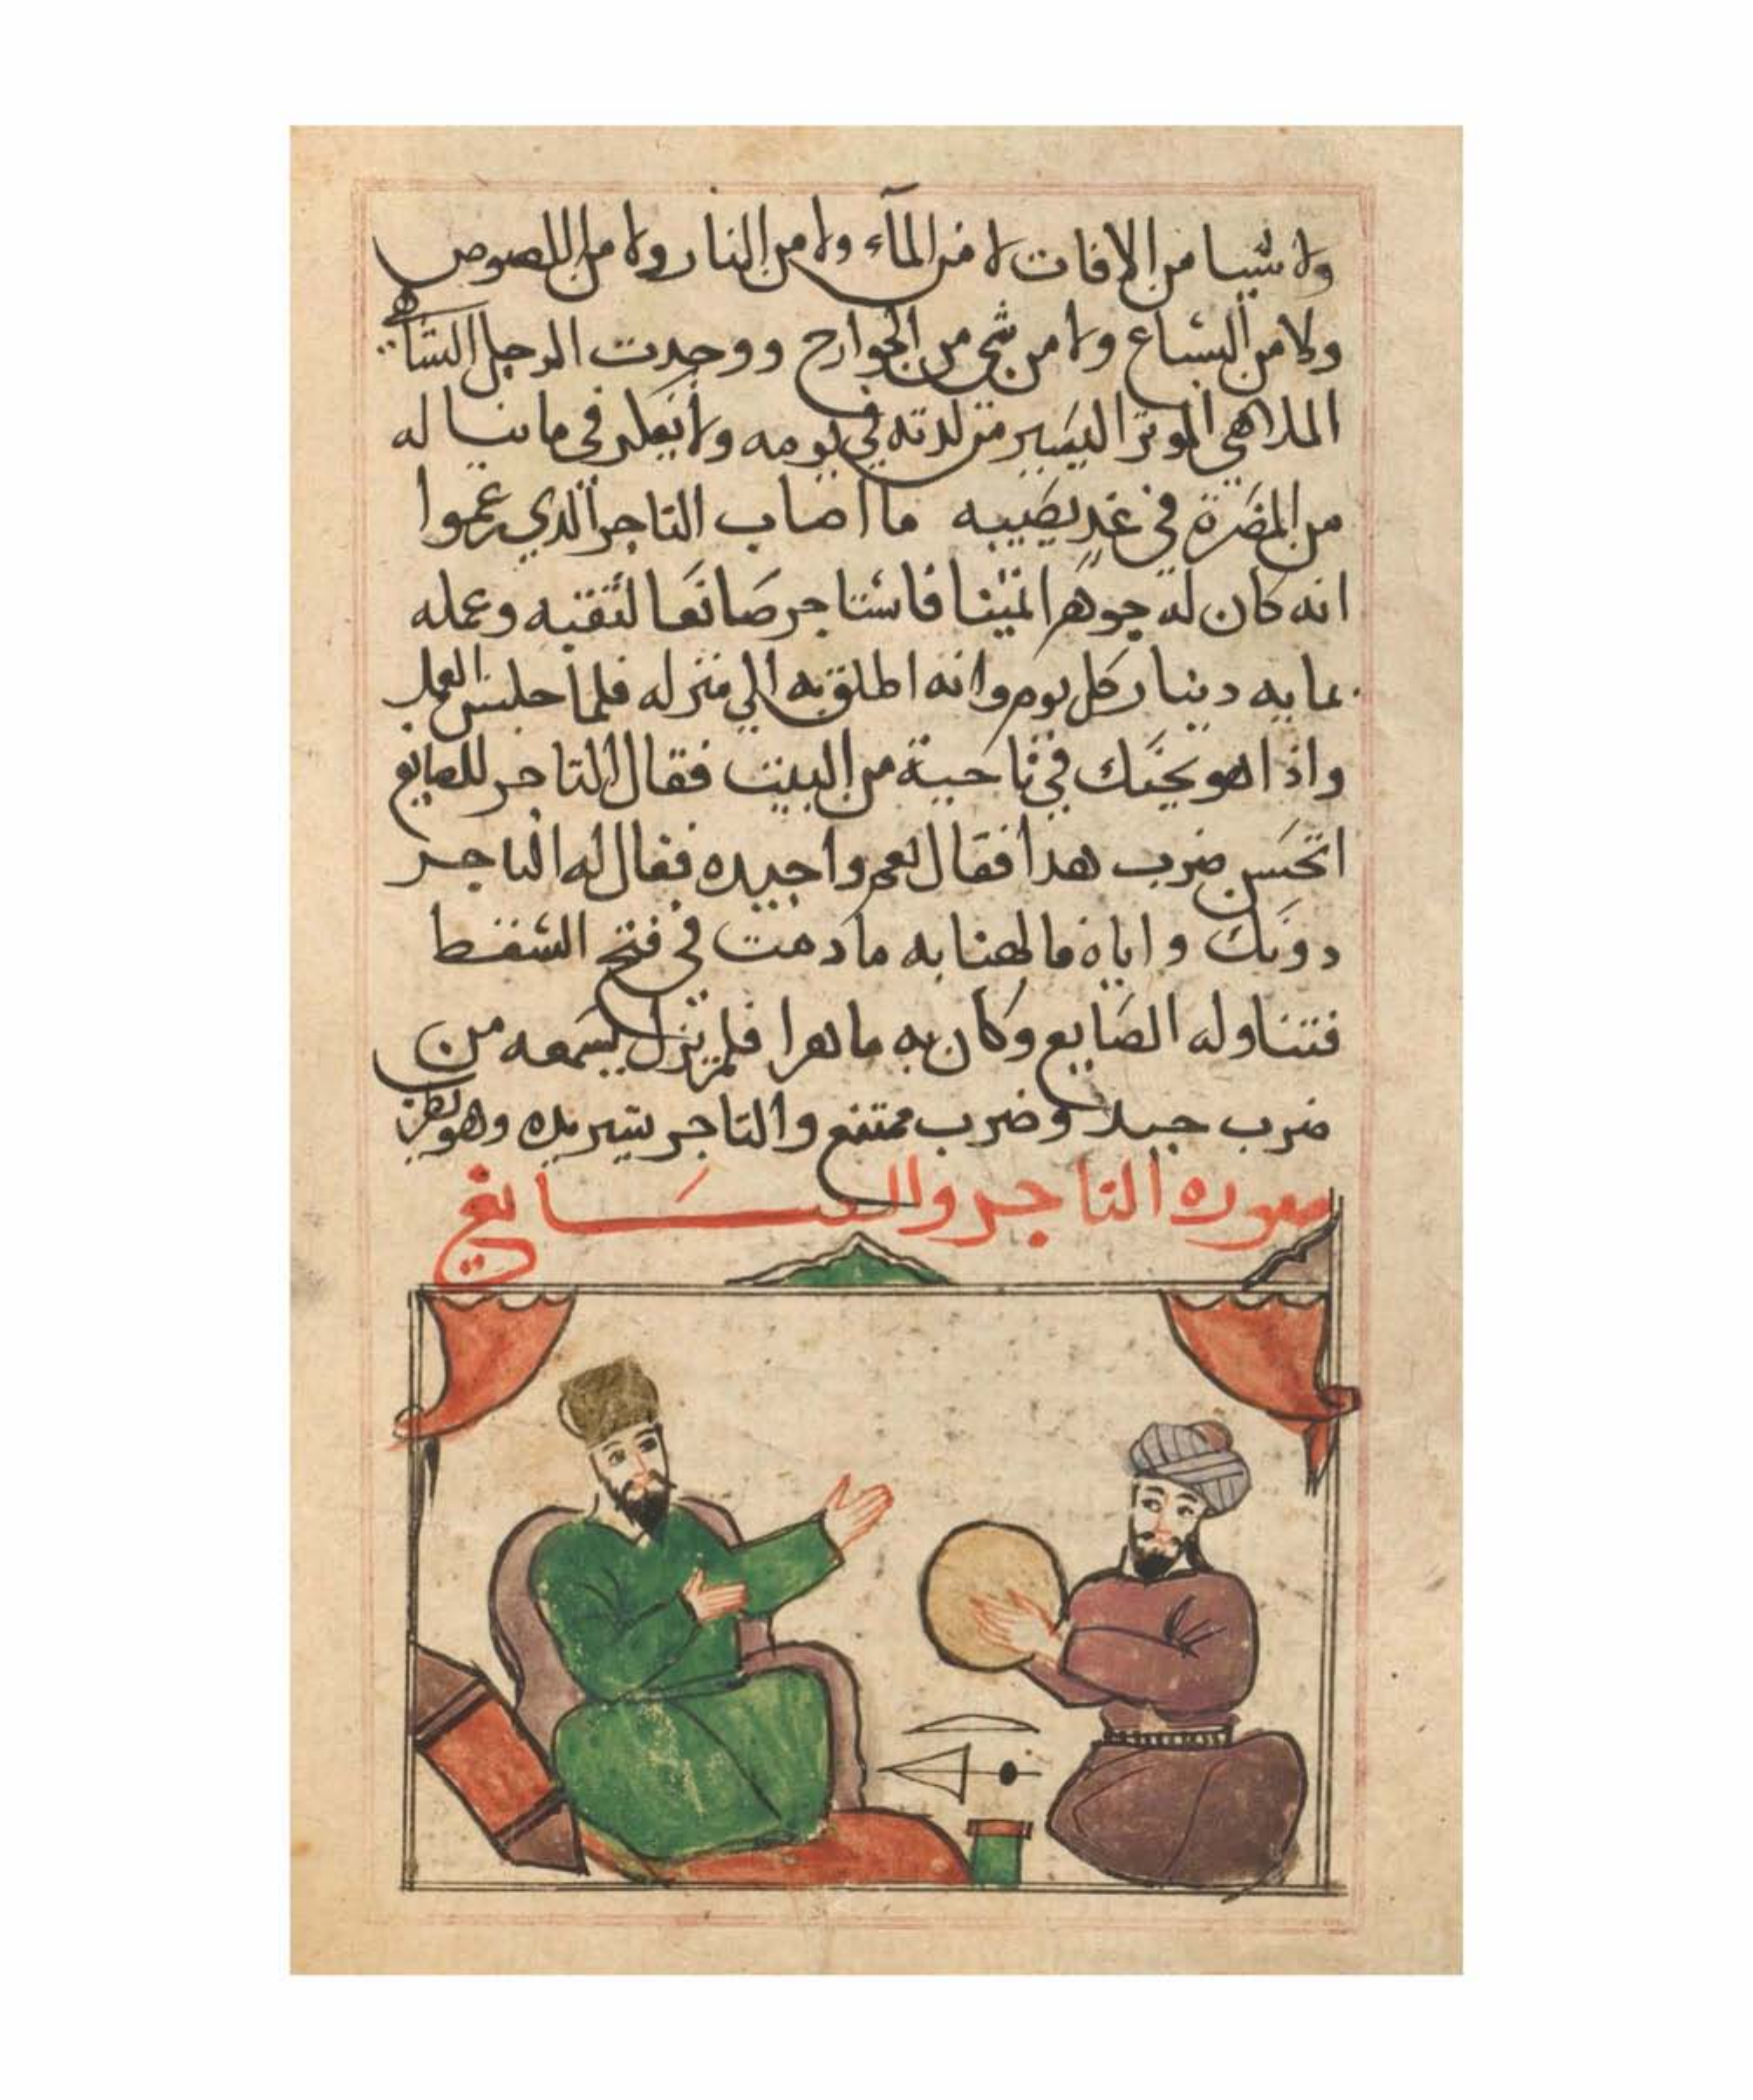 ولا شيا من الافات لا من المآء ولا من النار ولا من اللصوص
ولا من السباع ولا من شي من الجوارح ووجدت الرجل الساهي
الملاهي الموثر اليسير من لدته في يومه ولا في ما يناله
من المضرة في غد يصيبه ما اصاب التاجر الذي زعموا
انه كان له جوهرا ثمينا فاستاجر صانعا لثقبه وعمله
بمايه دينار كل يوم وانه انطلق به الي منزله فلما جلس العمل
واذا هو بجنك في ناحية من البيت فقال التاجر للصايع
اتحسن ضرب هدا فقال نعم واجيده فقال له التاجر
دونك واياه فالهنا به مادمت في فتح السفط
فتناوله الصايع وكان به ماهرا فلم يزل يسمعه من
ضرب جيد وضرب ممتنع والتاجر يشير بيده وهو يطرب
صوره التاجر والصايغ